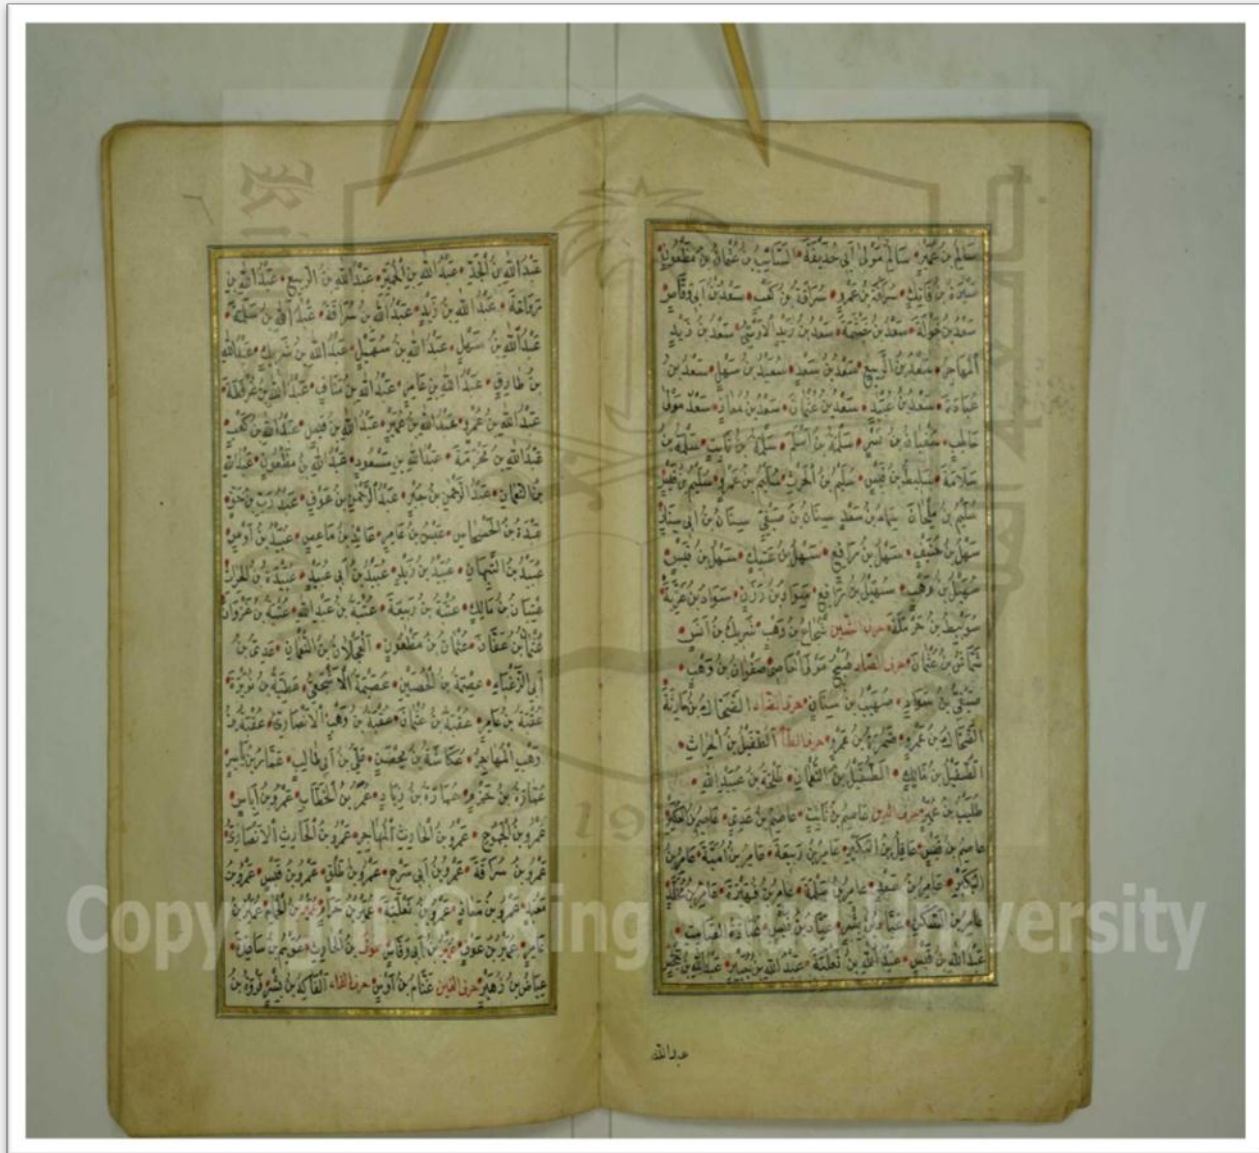 سَالِمُ بْنُ عُمَيْرٍ سَالِمُ مَوْلَى أَبِي حُذَيْفَةَ السَّائِبُ بْنُ عُثْمَانَ بْنِ مَظْعُونٍ
سَبْرَةُ بْنُ فَاتِكٍ سُرَاقَةُ بْنُ عَمْرٍو سُرَاقَةُ بْنُ كَعْبٍ سَعْدُ بْنُ أَبِي وَقَّاصٍ
سَعْدُ بْنُ خَوْلَةَ سَعْدُ بْنُ خَيْثَمَةَ سَعْدُ بْنُ زَيْدٍ الْأَوْسِيُّ سَعْدُ بْنُ زَيْدٍ
الْمُهَاجِرُ سَعْدُ بْنُ الرَّبِيعِ سَعْدُ بْنُ سَعْدٍ سَعِيدُ بْنُ سَهْلٍ سَعْدُ بْنُ
عُبَادَةَ سَعْدُ بْنُ عُبَيْدٍ سَعْدُ بْنُ عُثْمَانَ سَعْدُ بْنُ مُعَاذٍ سَعْدُ مَوْلَى
حَاطِبٍ سُفْيَانُ بْنُ نَسْرٍ سَلَمَةُ بْنُ أَسْلَمَ سَلَمَةُ بْنُ ثَابِتٍ سَلَمَةُ بْنُ
سَلَامَةَ سَلِيطُ بْنُ قَيْسٍ سُلَيْمُ بْنُ الْحَرْثِ سُلَيْمُ بْنُ عَمْرٍو سُلَيْمُ بْنُ قَيْسٍ
سُلَيْمُ بْنُ مِلْحَانَ سِمَاكُ بْنُ سَعْدٍ سِنَانُ بْنُ صَيْفِيٍّ سِنَانُ بْنُ أَبِي سِنَانٍ
سَهْلُ بْنُ حُنَيْفٍ سَهْلُ بْنُ رَافِعٍ سَهْلُ بْنُ عَتِيكٍ سَهْلُ بْنُ قَيْسٍ
سُهَيْلُ بْنُ وَهْبٍ سُهَيْلُ بْنُ رَافِعٍ سَوَادُ بْنُ رَزْنٍ سَوَادُ بْنُ غَزِيَّةَ
سُوَيْبِطُ بْنُ حَرْمَلَةَ حرف الشين شُجَاعُ بْنُ وَهْبٍ شَرِيكُ بْنُ أَنَسٍ
شَمَّاسُ بْنُ عُثْمَانَ حرف الصاد صُبَيْحُ مَوْلَى أَبِي الْعَاصِ صَفْوَانُ بْنُ وَهْبٍ
صَيْفِيُّ بْنُ سَوَادٍ صُهَيْبُ بْنُ سِنَانٍ حرف الضاد الضَّحَّاكُ بْنُ حَارِثَةَ
الضَّحَّاكُ بْنُ عَمْرٍو ضَمْرَةُ بْنُ عَمْرٍو حرف الطاء الطُّفَيْلُ بْنُ الْحَرَاثِ
الطُّفَيْلُ بْنُ مَالِكٍ الطُّفَيْلُ بْنُ النُّعْمَانِ طَلْحَةُ بْنُ عُبَيْدِ اللَّهِ
طُلَيْبُ بْنُ عُمَيْرٍ حرف العين عَاصِمُ بْنُ ثَابِتٍ عَاصِمُ بْنُ عَدِيٍّ عَاصِمُ بْنُ الْعُكَيْرِ
عَاصِمُ بْنُ قَيْسٍ عَاقِلُ بْنُ الْبُكَيْرِ عَامِرُ بْنُ رَبِيعَةَ عَامِرُ بْنُ أُمَيَّةَ عَامِرُ بْنُ
الْبُكَيْرِ عَامِرُ بْنُ سَعْدٍ عَامِرُ بْنُ سَلَمَةَ عَامِرُ بْنُ فُهَيْرَةَ عَامِرُ بْنُ مُخَلَّدٍ
عَامِرُ بْنُ السَّكَنِ عَبَّادُ بْنُ بِشْرٍ عَبَّادُ بْنُ قَيْسٍ عُبَادَةُ الصَّامِتِ
عَبْدُ اللَّهِ بْنُ قَيْسٍ عَبْدُ اللَّهِ بْنُ ثَعْلَبَةَ عَبْدُ اللَّهِ بْنُ جُبَيْرٍ عَبْدُ اللَّهِ بْنُ جَحْشٍ
عبد الله
عَبْدُ اللَّهِ بْنُ الْجَدِّ عَبْدُ اللَّهِ بْنُ الْحُمَيِّرِ عَبْدُ اللَّهِ بْنُ الرَّبِيعِ عَبْدُ اللَّهِ بْنُ
رَوَاحَةَ عَبْدُ اللَّهِ بْنُ زَيْدٍ عَبْدُ اللَّهِ بْنُ سُرَاقَةَ عَبْدُ اللَّهِ بْنُ سَلَمَةَ
عَبْدُ اللَّهِ بْنُ سَهْلٍ عَبْدُ اللَّهِ بْنُ سُهَيْلٍ عَبْدُ اللَّهِ بْنُ شَرِيكٍ عَبْدُ اللَّهِ
بْنُ طَارِقٍ عَبْدُ اللَّهِ بْنُ عَامِرٍ عَبْدُ اللَّهِ بْنُ مَنَافٍ عَبْدُ اللَّهِ بْنُ عُرْفُطَةَ
عَبْدُ اللَّهِ بْنُ عَمْرٍو عَبْدُ اللَّهِ بْنُ عُمَيْرٍ عَبْدُ اللَّهِ بْنُ قَيْسٍ عَبْدُ اللَّهِ بْنُ كَعْبٍ
عَبْدُ اللَّهِ بْنُ مَخْرَمَةَ عَبْدُ اللَّهِ بْنُ مَسْعُودٍ عَبْدُ اللَّهِ بْنُ مَظْعُونٍ عَبْدُ اللَّهِ
بْنُ النُّعْمَانِ عَبْدُ الرَّحْمَنِ بْنُ جَبْرٍ عَبْدُ الرَّحْمَنِ بْنُ عَوْفٍ عَبْدُ رَبِّ بْنُ حَقٍّ
عَبْدَةُ بْنُ الْحَسْحَاسِ عَبْسُ بْنُ عَامِرٍ عَائِذُ بْنُ مَاعِصٍ عُبَيْدُ بْنُ أَوْسٍ
عُبَيْدُ بْنُ التَّيِّهَانِ عُبَيْدُ بْنُ زَيْدٍ عُبَيْدُ بْنُ أَبِي عُبَيْدٍ عُبَيْدَةُ بْنُ الْحَرَاثِ
عِتْبَانُ بْنُ مَالِكٍ عُتْبَةُ بْنُ رَبِيعَةَ عُتْبَةُ بْنُ عَبْدِ اللَّهِ عُتْبَةُ بْنُ غَزْوَانَ
عُثْمَانُ بْنُ عَفَّانَ عُثْمَانُ بْنُ مَظْعُونٍ الْعَجْلَانُ بْنُ النُّعْمَانِ عَدِيُّ بْنُ
أَبِي الزَّغْبَاءِ عِصْمَةُ بْنُ الْحُصَيْنِ عُصَيْمَةُ الْأَشْجَعِيُّ عَطِيَّةُ بْنُ نُوَيْرَةَ
عُقْبَةُ بْنُ عَامِرٍ عُقْبَةُ بْنُ عُثْمَانَ عُقْبَةُ بْنُ وَهْبٍ الْأَنْصَارِيُّ عُقْبَةُ بْنُ
وَهْبٍ الْمُهَاجِرُ عُكَاشَةُ بْنُ مِحْصَنٍ عَلِيُّ بْنُ أَبِي طَالِبٍ عَمَّارُ بْنُ يَاسِرٍ
عُمَارَةُ بْنُ حَزْمٍ عُمَارَةُ بْنُ زِيَادٍ عُمَرُ بْنُ الْخَطَّابِ عَمْرُو بْنُ إِيَاسٍ
عَمْرُو بْنُ الْجَمُوحِ عَمْرُو بْنُ الْحَارِثِ الْمُهَاجِرُ عَمْرُو بْنُ الْحَارِثِ الْأَنْصَارِيُّ
عَمْرُو بْنُ سُرَاقَةَ عَمْرُو بْنُ أَبِي سَرْحٍ عَمْرُو بْنُ طَلْقٍ عَمْرُو بْنُ قَيْسٍ عَمْرُو بْنُ
مَعْبَدٍ عَمْرُو بْنُ ثَعْلَبَةَ عُمَيْرُ بْنُ حَرَامٍ عُمَيْرُ بْنُ الْحُمَامِ عُمَيْرُ بْنُ
عَامِرٍ عُمَيْرُ بْنُ عَوْفٍ عُمَيْرُ بْنُ أَبِي وَقَّاصٍ عَوْفُ بْنُ الْحَارِثِ عُوَيْمُ بْنُ سَاعِدَةَ
عِيَاضُ بْنُ زُهَيْرٍ حرف الغين غَنَّامُ بْنُ أَوْسٍ حرف الفاء الْفَاكِهُ بْنُ بِشْرٍ فَرْوَةُ بْنُ
Copyright © King Saud University